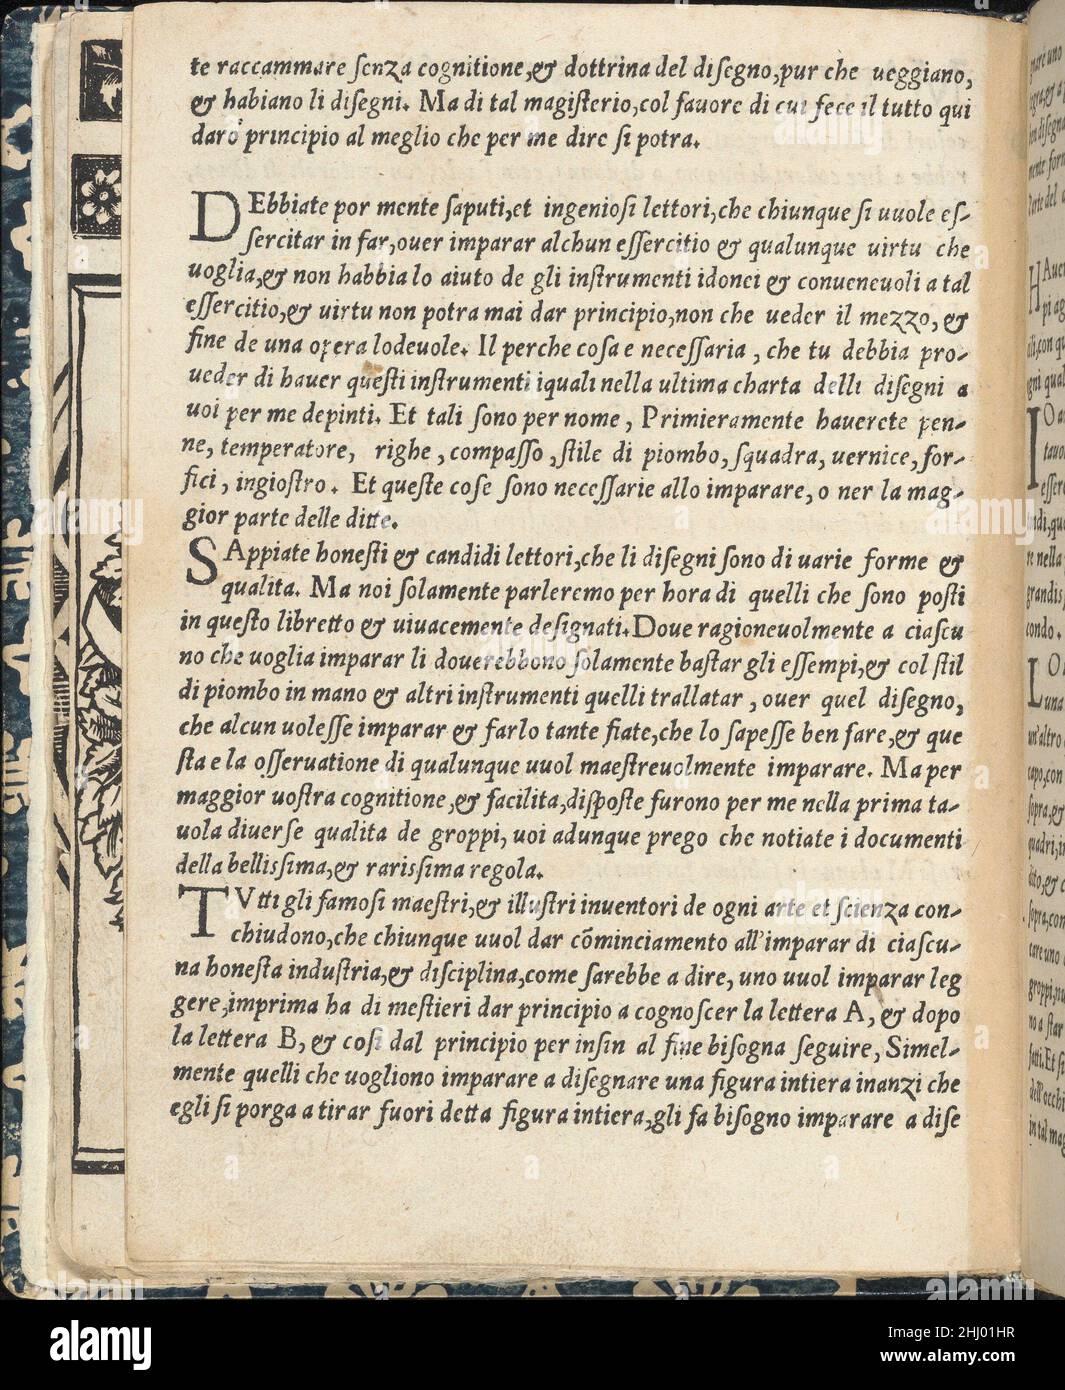 te raccammare ſenza cognitione,& dottrina del diſegno,pur che ueggiano,
& habiano li diſegni. Ma di tal magiſterio,col fauore di cui fece il tutto qui
daro principio al meglio che per me dire ſi potra.
DEbbiate por mente ſaputi,et ingenioſi lettori,che chiunque ſi uuole eſ-
ſercitar in far,ouer imparar alchun eſſercitio & qualunque uirtu che
uoglia,& non habbia lo aiuto de gli inſtrumenti idonei & conueneuoli a tal
eſſercitio,& uirtu non potra mai dar principio,non che ueder il mezzo, &
fine de una opera lodeuole. Il perche coſa e neceſſaria , che tu debbia pro-
ueder di hauer queſti inſtrumenti iquali nella ultima charta delli diſegni a
uoi per me depinti. Et tali ſono per nome , Primieramente hauerete pen-
ne, temperatore, righe , compaſſo , ſtile di piombo, ſquadra, uernice, for-
fici , ingioſtro . Et queſte coſe ſono neceſſarie allo imparare, o ner la mag-
gior parte delle ditte.
SAppiate honeſti & candidi lettori,che li diſegni ſono di uarie forme &
qualita. Ma noi ſolamente parleremo per hora di quelli che ſono poſti
in queſto libretto & uiuacemente deſignati.Doue ragioneuolmente a ciaſcu
no che uoglia imparar li douerebbono ſolamente baſtar gli eſſempi,& col ſtil
di piombo in mano & altri inſtrumenti quelli trallatar , ouer quel diſegno,
che alcun uoleſſe imparar & farlo tante fiate,che lo ſapeſſe ben fare,& que
ſta e la oſſeruatione di qualunque uuol maeſtreuolmente imparare. Ma per
maggior uoſtra cognitione,& facilita,diſpoſte furono per me nella prima ta-
uola diuerſe qualita de groppi, uoi adunque prego che notiate i documenti
della belliſsima,& rariſsima regola.
TVtti gli famoſi maeſtri,& illuſtri inuentori de ogni arte et ſcienza con-
chiudono,che chiunque uuol dar cõminciamento all'imparar di ciaſcu-
na honeſta induſtria,& diſciplina,come ſarebbe a dire, uno uuol imparar leg
gere,imprima ha di meſtieri dar principio a cognoſcer la lettera A, & dopo
la lettera B, & coſi dal principio per inſin al fine biſogna ſeguire, Simel-
mente quelli che uogliono imparare a diſegnare una figura intiera inanzi che
egli ſi porga a tirar fuori detta figura intiera,gli fa biſogno imparare a diſe
alamy
Image ID: 2HJ01HR
www.alamy.com